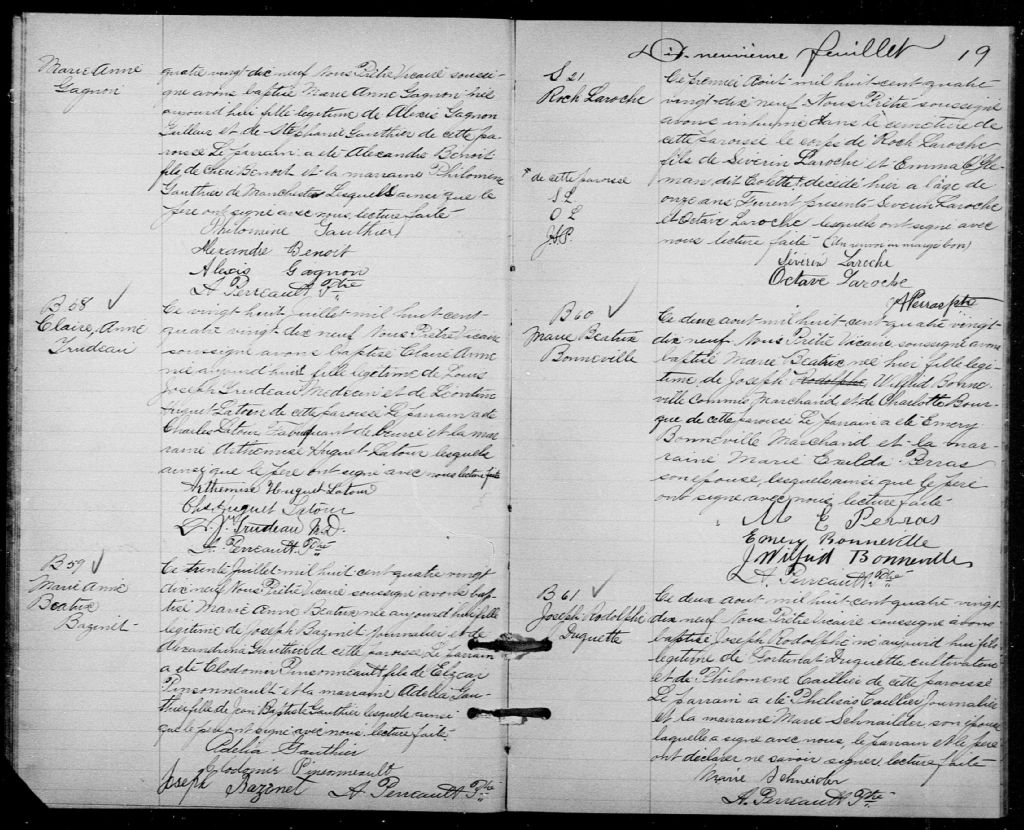 Marie Anne
Gagnon
quatre vingt dix neuf Nous Prêtre Vicaire soussi-
gné avons baptisé Marie Anne Gagnon née
aujourd'hui fille légitime de Alexis Gagnon
et de Stéphanie Gauthier de cette pa-
roisse Le parrain a été Alexandre Benoit
fils de Benoit et la marraine Philomene
Gauthier de Manchester Lesquels ainsi que le
père ont signé avec nous lecture faite
Philomine Gauthier
Alexandre Benoit
Alexis Gagnon
A. Perreault Ptre
B 58
Claire Anne
Trudeau
Ce vingt huit juillet mil huit cent
quatre vingt dix neuf Nous Prêtre Vicaire
soussigné avons baptisé Claire Anne
née aujourd'hui fille légitime de Louis
Joseph Trudeau Medecin et de Léontine
Huguet Latour de cette paroisse Le parrain a été
Charles Latour Fabriquant de beurre et la mar
raine Arthemise Huguet-Latour lesquels
ainsi que le père ont signé avec nous lecture faite
Arthemise Huguet Latour
Chs Huguet Latour
L. J. Trudeau M.D.
A. Perreault Ptre
B 59
Marie Anne
Beatrix
Bazinet
Ce trente Juillet mil huit cent quatre vingt
dix neuf Nous Prêtre Vicaire soussigné avons bap-
tisé Marie Anne Beatrix née aujourd'hui fille
légitime de Joseph Bazinet Journalier et de
Alexandrina Gauthier de cette paroisse Le parrain
a été Clodomir Pinsonneault fils de Elzear
Pinsonneault et la marraine Adelia Gau-
thier fille de Jean Baptiste Gauthier lesquels ainsi
que le père ont signé avec nous lecture faite
Adelia Gauthier
Clodomir Pinsonneault
Joseph Bazinet A. Perreault Ptre
Dix neuvième feuillet 19
S 21
Roch Laroche
* de cette paroisse
S L
O L
J.A.P.
Ce premier Aout mil huit cent quatre
vingt-dix neuf Nous Prêtre soussigné
avons inhumé dans le cemetière de
cette paroisse le corps de Roch Laroche
fils de Séverin Laroche et Emma
dit Colette* décédé hier a l'âge de
onze ans Furent presents Séverin Laroche
et Octave Laroche lesquels ont signé avec
nous lecture faite (Un renvoi en marge bon)
Séverin Laroche
Octave Laroche
A Perras ptre
B 60
Marie Beatrix
Bonneville
Ce deux aout mil huit cent quatre vingt
dix neuf Nous Prêtre Vicaire soussigné avons
baptisé Marie Beatrix née hier fille legi-
time de Joseph Rodolphe Wilfrid Bonne-
ville Commis Marchand et de Charlotte Bour-
que de cette paroisse Le parrain a été Emery
Bonneville Marchand et la mar-
raine Marie Exilda Perras
son épouse, lesquels ainsi que le père
ont signé avec nous lecture faite
M E Perras
Emery Bonneville
J Wilfrid Bonneville
A. Perreault Ptre
B 61
Joseph Rodolphe
Duquette
Ce deux aout mil huit cent quatre vingt
dix neuf Nous Prêtre Vicaire soussigné avons
baptisé Joseph Rodolphe né aujourd'hui fils
légitime de Fortunat Duquette cultivateur
et de Philomene Caillier de cette paroisse
Le parrain a été Caillier Journalier
et la marraine Marie Schnaider son épouse
laquelle a signé avec nous, le parrain et le père
ont déclarer ne savoir signer lecture faite
Marie Schneider
A. Perreault Ptre